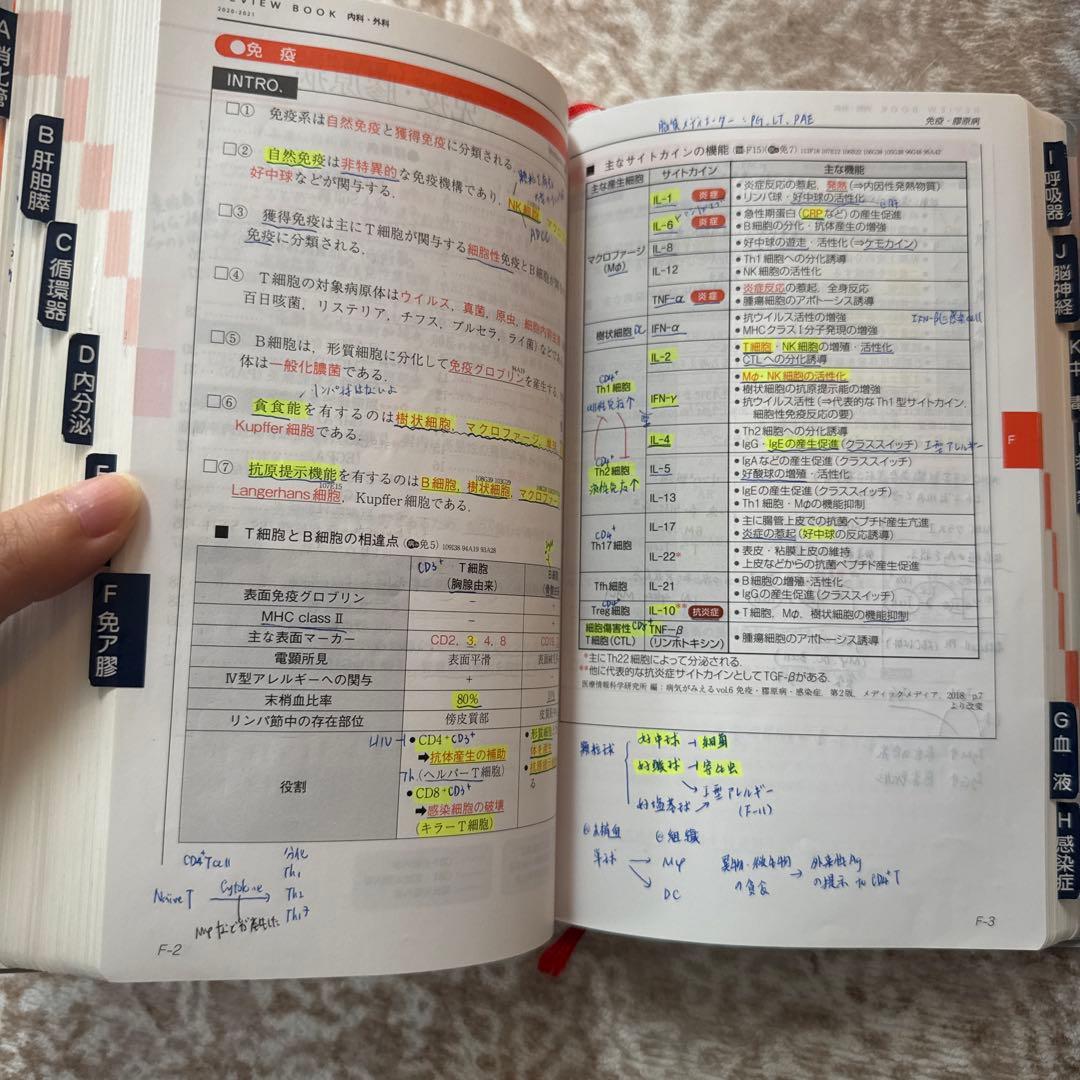 REVIEW BOOK 内科・外科
2020-2021
●免疫
INTRO.
□① 免疫系は自然免疫と獲得免疫に分類される.
□② 自然免疫は非特異的な免疫機構であり, NK細胞,
好中球などが関与する.
ADCC
□③ 獲得免疫は主にT細胞が関与する細胞性免疫とB細胞が
免疫に分類される.
□④ T細胞の対象病原体はウイルス, 真菌, 原虫, 細胞内
百日咳菌, リステリア, チフス, ブルセラ, ライ菌)など
□⑤ B細胞は, 形質細胞に分化して免疫グロブリンを産生する.
体は一般化膿菌である.
94A19
□⑥ 貪食能を有するのは樹状細胞, マクロファージ,
Kupffer細胞である.
□⑦ 抗原提示機能を有するのはB細胞, 樹状細胞, マクロファー
Langerhans細胞, Kupffer細胞である.
107E15
■ T細胞とB細胞の相違点 (免5) 109I38 94A19 93A28
CD3⁺ T細胞
(胸腺由来)
表面免疫グロブリン −
MHC class Ⅱ −
主な表面マーカー CD2, 3, 4, 8
電顕所見 表面平滑
Ⅳ型アレルギーへの関与 +
末梢血比率 80%
リンパ節中の存在部位 傍皮質部
役割
HIV→ ●CD4⁺CD3⁺
➡抗体産生の補助
Th (ヘルパーT細胞)
●CD8⁺CD3⁺
➡感染細胞の破壊
(キラーT細胞)
CD4⁺T cell
分化
Naive T Cytokine → Th1
Th2
Mφなどが産生した
F-2
脂質メディエーター:PG, LT, PAE
免疫・膠原病
■ 主なサイトカインの機能
主な産生細胞 サイトカイン 主な機能
マクロファージ
(Mφ)
IL-1 炎症 ●炎症反応の惹起, 発熱(⇒内因性発熱物質)
●リンパ球・好中球の活性化
IL-6 炎症 ●急性期蛋白(CRPなど)の産生促進
●B細胞の分化・抗体産生の増強
IL-8 ●好中球の遊走・活性化(⇒ケモカイン)
IL-12 ●Th1細胞への分化誘導
●NK細胞の活性化
TNF-α 炎症 ●炎症反応の惹起, 全身反応
●腫瘍細胞のアポトーシス誘導
樹状細胞 DC IFN-α ●抗ウイルス活性の増強
●MHCクラスⅠ分子発現の増強
CD4⁺
Th1細胞
IL-2 ●T細胞・NK細胞の増殖・活性化
●CTLへの分化誘導
IFN-γ ●Mφ・NK細胞の活性化
●樹状細胞の抗原提示能の増強
●抗ウイルス活性(⇒代表的なTh1型サイトカイン.
細胞性免疫反応の要)
CD4⁺
Th2細胞
液性免疫↑
IL-4 ●Th2細胞への分化誘導
●IgG・IgEの産生促進(クラススイッチ) Ⅰ型アレルギー
IL-5 ●IgAなどの産生促進(クラススイッチ)
●好酸球の増殖・活性化
IL-13 ●IgEの産生促進(クラススイッチ)
●Th1細胞・Mφの機能抑制
CD4
Th17細胞
IL-17 ●主に腸管上皮での抗菌ペプチド産生亢進
●炎症の惹起(好中球の反応誘導)
IL-22* ●表皮・粘膜上皮の維持
●上皮などからの抗菌ペプチド産生促進
Tfh細胞 IL-21 ●B細胞の増殖・活性化
●IgGの産生促進(クラススイッチ)
Treg細胞 IL-10** 抗炎症 ●T細胞, Mφ, 樹状細胞の機能抑制
細胞傷害性
T細胞(CTL) CD8⁺
TNF-β
(リンホトキシン) ●腫瘍細胞のアポトーシス誘導
*主にTh22細胞によって分泌される.
**他に代表的な抗炎症サイトカインとしてTGF-βがある.
医療情報科学研究所 編:病気がみえるvol.6 免疫・膠原病・感染症, 第2版, メディックメディア, 2018, p.7
より改変
顆粒球
好中球 → 細菌
好酸球 → 寄生虫
Ⅰ型アレルギー
好塩基球 (F-11)
末梢血 組織
単球 → Mφ
DC
異物・微生物の貪食 → 外来性Agの提示 to CD4⁺T
F-3
A 消化管
B 肝胆膵
C 循環器
D 内分泌
F 免ア膠
I 呼吸器
J 脳神経
K 中毒
F
G 血液
H 感染症